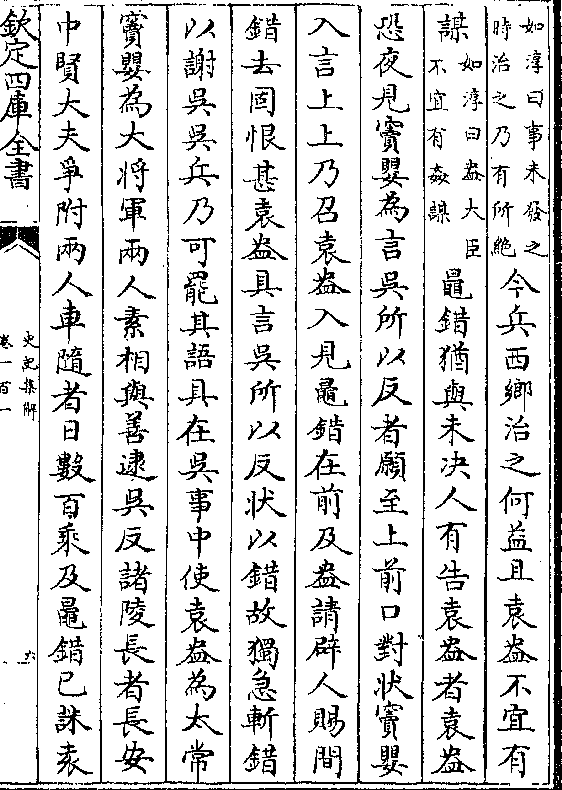 如淳曰事未發之
時治之乃有所絶
今兵西鄉治之何益且袁盎不宜有
謀
如淳曰盎大臣
不宜有姦謀
鼂錯猶與未决人有告袁盎者袁盎
恐夜見竇嬰為言吳所以反者願至上前口對狀竇嬰
入言上上乃召袁盎入見鼂錯在前及盎請辟人賜間
錯去固恨甚袁盎具言吳所以反状以錯故獨急斬錯
以謝吳吳兵乃可罷其語具在吳事中使袁盎為太常
竇嬰為大將軍兩人素相與善逮吳反諸陵長者長安
中賢大夫爭附兩人車隨者日數百乘及鼂錯已誅袁
欽定四庫全書
史記集解
卷一百一
六